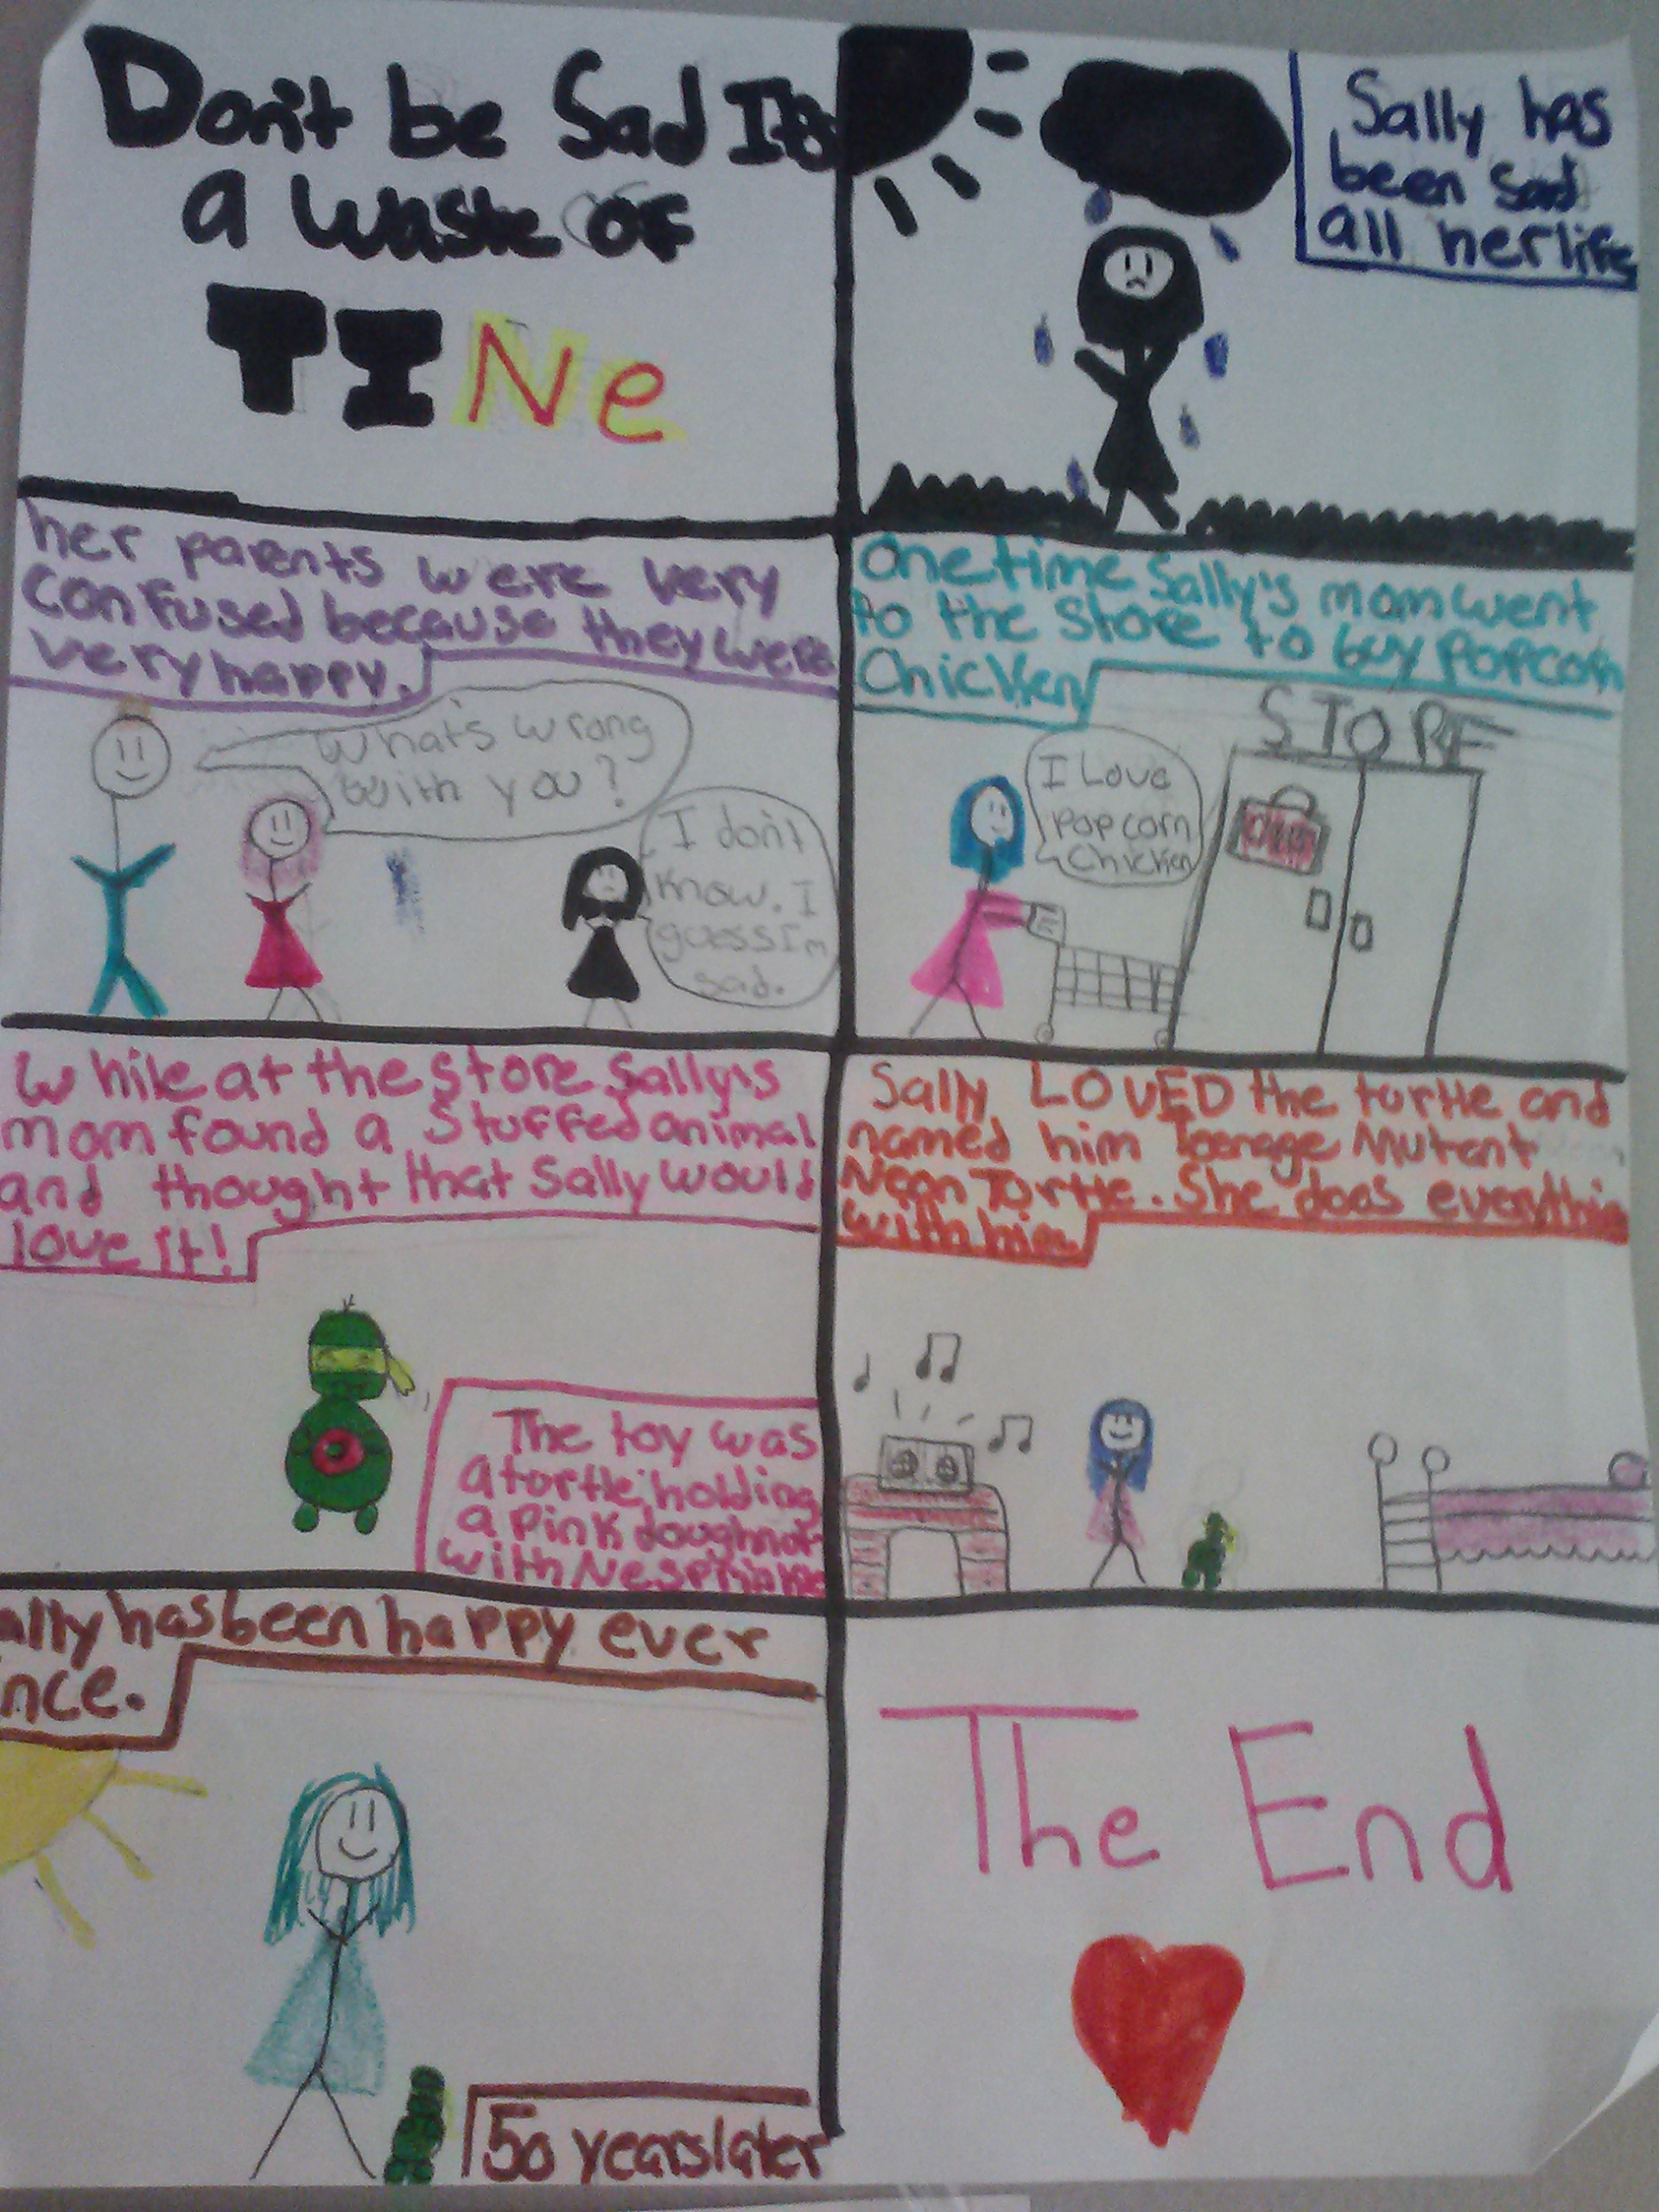 Don't be Sad Its
a waste of
TINe
Sally has
been sad
all her life
her parents were very
confused because they were
very happy.
What's wrong
with you?
I don't
know. I
guess I'm
sad.
One time Sally's mom went
to the store to buy popcorn
Chicken
STORE
I Love
popcorn
Chicken
While at the store Sally's
mom found a Stuffed animal
and thought that Sally would
love it!
The toy was
a tortle holding
a pink doughnot
with
Sally LOVED the turtle and
named him Teenage Mutent
Neon Tortle. She does everything
with him
ally has been happy ever
nce.
50 years later
The End